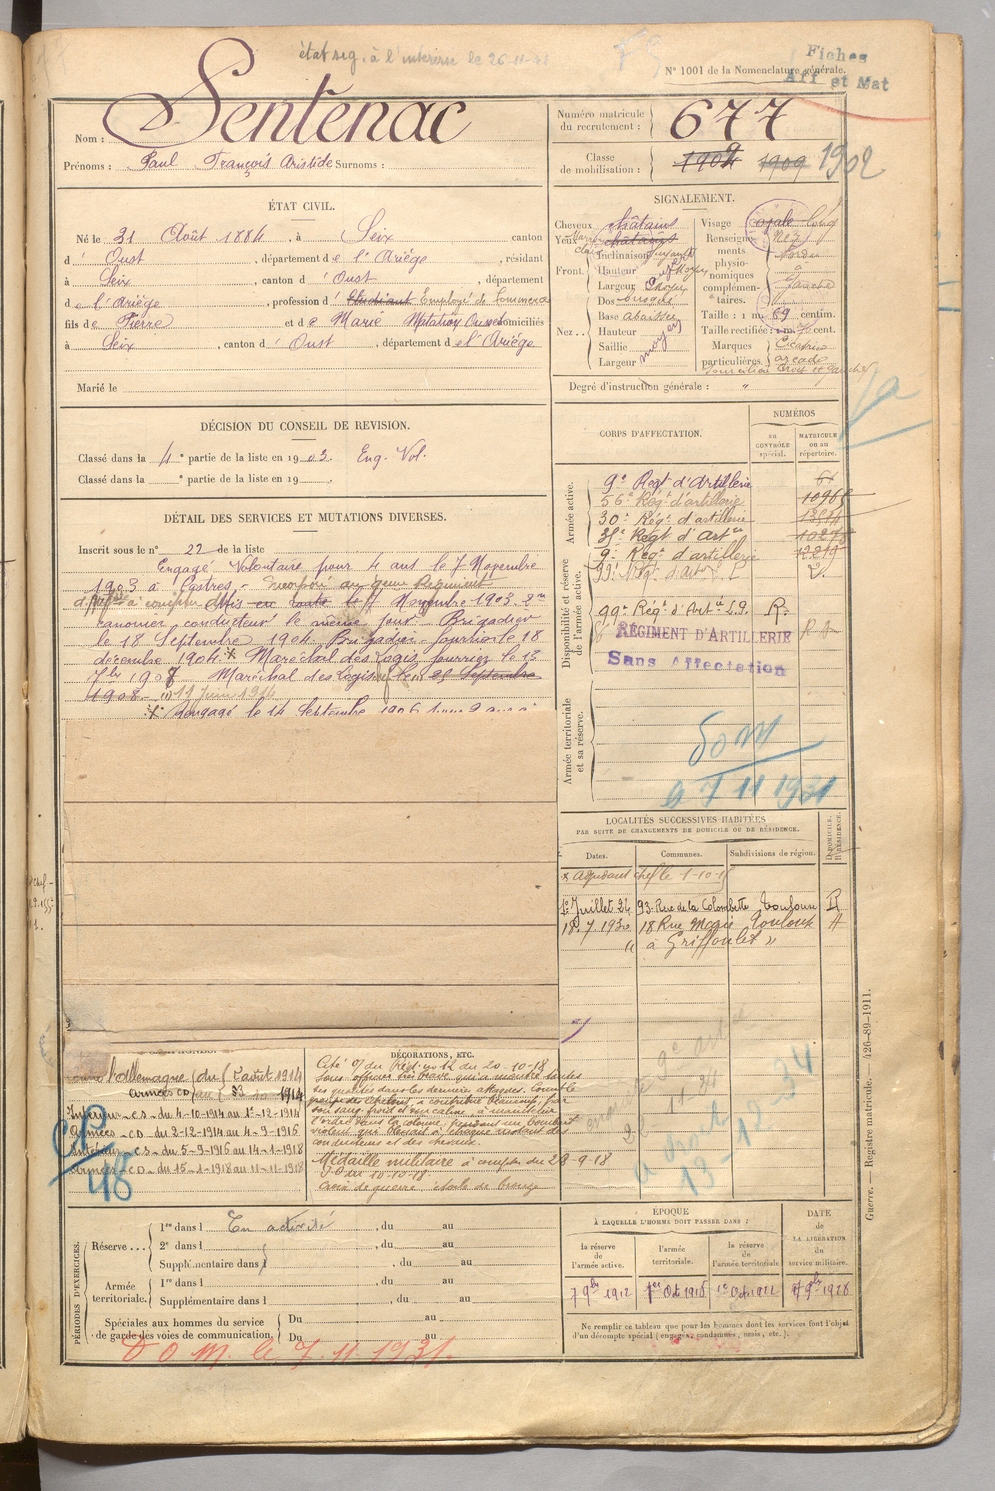 état sig. à l'interieur le 26-11-
Fiches
Aff et Mat
N° 1001 de la Nomenclature générale.
Nom : Sentenac
Prénoms : Paul François Aristide Surnoms :
Numéro matricule du recrutement : 677
Classe de mobilisation : 1904 1909 1902
ÉTAT CIVIL.
Né le 31 Août 1884, à Seix canton
d' Oust, département de l'Ariège, résidant
à Seix, canton d' Oust, département
de l'Ariège, profession d' Etudiant Employé de Commerce
fils de Pierre et de Marie domiciliés
à Seix, canton d' Oust, département de l'Ariège
Marié le
SIGNALEMENT.
Cheveux châtains
Yeux châtains
Front. Inclinaison
Hauteur
Largeur moyen
Nez. Dos busqué
Base abaissée
Hauteur
Saillie
Largeur
moyen
Visage ovale long
Renseignements physionomiques complémentaires.
Nez
gauche
Taille : 1 m. 69 centim.
Taille rectifiée : 1 m. cent.
Marques particulières. Cicatrice arcade
sourcilière droit et gauche
Degré d'instruction générale : "
DÉCISION DU CONSEIL DE REVISION.
Classé dans la 4e partie de la liste en 1903. Eng. Vol.
Classé dans la e partie de la liste en 19
DÉTAIL DES SERVICES ET MUTATIONS DIVERSES.
Inscrit sous le n° 22 de la liste
Engagé Volontaire pour 4 ans le 7 Novembre
1903 à Castres - Incorporé au 9eme Régiment
d'Artie à compter Mis en route le Novembre 1903. 2me
canonier conducteur le même jour. Brigadier
le 18 Septembre 1904. Brigadier-fourrier le 18
décembre 1904. * Maréchal des Logis fourrier le 13
7bre 1907 Maréchal des Logis le 25 Septembre
1908 - 11 Juin 1914
* Rengagé le 14 Septembre 1906
CORPS D'AFFECTATION.
NUMÉROS
AU CONTRÔLE spécial.
MATRICULE ou au répertoire.
Armée active.
9e Régt d'Artillerie 61
56e Rég. d'artillerie 10965
30e Rég. d'artillerie
35e Régt d'Art ie 10278
9e Rég. d'artillerie 12219
Disponibilité et réserve de l'armée active.
99e Rég. d'Art ie L.P. R.
RÉGIMENT D'ARTILLERIE
Sans Affectation
Armée territoriale et sa réserve.
Dom
7 11 1931
LOCALITÉS SUCCESSIVES HABITÉES
PAR SUITE DE CHANGEMENTS DE DOMICILE OU DE RÉSIDENCE.
Dates.
Communes.
Subdivisions de région.
D. DOMICILE. R. RÉSIDENCE.
* Adjudant chef le 1-10-
1er Juillet 24 93 Rue de la Colombette Toulouse R
18.7.1930 18 Rue Toulouse
" à Griffoulet "
l'Allemagne du 2 août 1914
Armées CD au 1914
Intérieur - c.s. - du 4-10-1914 au 1-12-1914
Armées - CD du 2-12-1914 au 4-9-1916
Intérieur - c.s. du 5-9-1916 au 14-1-1918
Armées - C.D. du 15-1-1918 au 11-11-1918
CP
48
DÉCORATIONS, ETC.
Cité O/ du Régt n° 12 du 20-10-18
Sous officier très brave qui a montré toutes
ses qualités dans les dernières attaques. Comme le
a contribué beaucoup, par
son sang froid et son calme, à maintenir
l'ordre dans la colonne, pendant un bombart
violent qui blessait à chaque instant des
conducteurs et des chevaux.
Médaille militaire à compter du 28-9-18
10-10-18
Croix de guerre étoile de bronze
22-11-34
a droit
13-12-34
PÉRIODES D'EXERCICES.
Réserve ...
1re dans l En activité, du au
2e dans l , du au
Supplémentaire dans l , du au
Armée territoriale.
1re dans l , du au
Supplémentaire dans l , du au
Spéciales aux hommes du service de garde des voies de communication.
Du au
Du au
D O M. le 7. 11. 1931.
ÉPOQUE
À LAQUELLE L'HOMME DOIT PASSER DANS :
la réserve de l'armée active.
l'armée territoriale.
la réserve de l'armée territoriale
DATE de LA LIBÉRATION du service militaire.
7 9bre 1912
1er Oct 1918
1er Oct 1922
7 9bre 1928
Ne remplir ce tableau que pour les hommes dont les services font l'objet
d'un décompte spécial (engagés, condamnés, omis, etc.).
Guerre. — Registre matricule. — 426-89-1911.